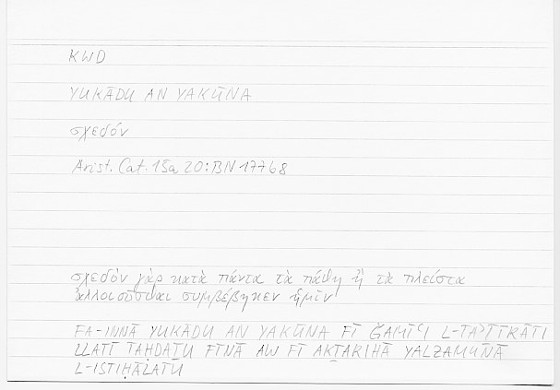 KWD
YUKĀDU AN YAKŪNA
σχεδόν
Arist. Cat. 15a 20: BN 177 b8
σχεδὸν γὰρ κατὰ πάντα τὰ πάθη ἢ τὰ πλεῖστα
ἀλλοιοῦσθαι συμβέβηκεν ἡμῖν
FA-INNĀ YUKĀDU AN YAKŪNA FĪ ǦAMĪʿI L-TAʾṮĪRĀTI
LLATĪ TAḤDAṮU FĪNĀ AW FĪ AKṮARIHĀ YALZAMUNĀ
L-ISTIḤĀLATU